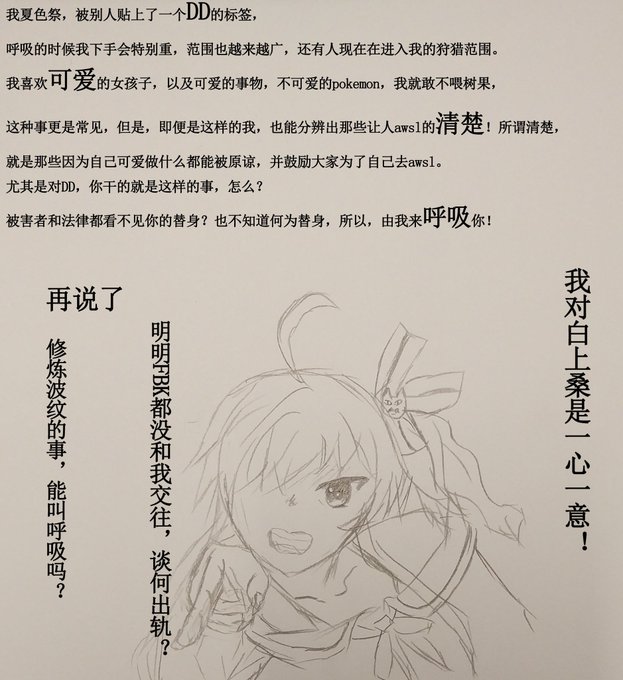 我夏色祭，被别人贴上了一个DD的标签，
呼吸的时候我下手会特别重，范围也越来越广，还有人现在在进入我的狩猎范围。
我喜欢可爱的女孩子，以及可爱的事物，不可爱的pokemon，我就敢不喂树果，
这种事更是常见，但是，即便是这样的我，也能分辨出那些让人awsl的清楚！所谓清楚，
就是那些因为自己可爱做什么都能被原谅，并鼓励大家为了自己去awsl。
尤其是对DD，你干的就是这样的事，怎么？
被害者和法律都看不见你的替身？也不知道何为替身，所以，由我来呼吸你！
我对白上桑是一心一意！
再说了
明明FBK都没和我交往，谈何出轨？
修炼波纹的事，能叫呼吸吗？